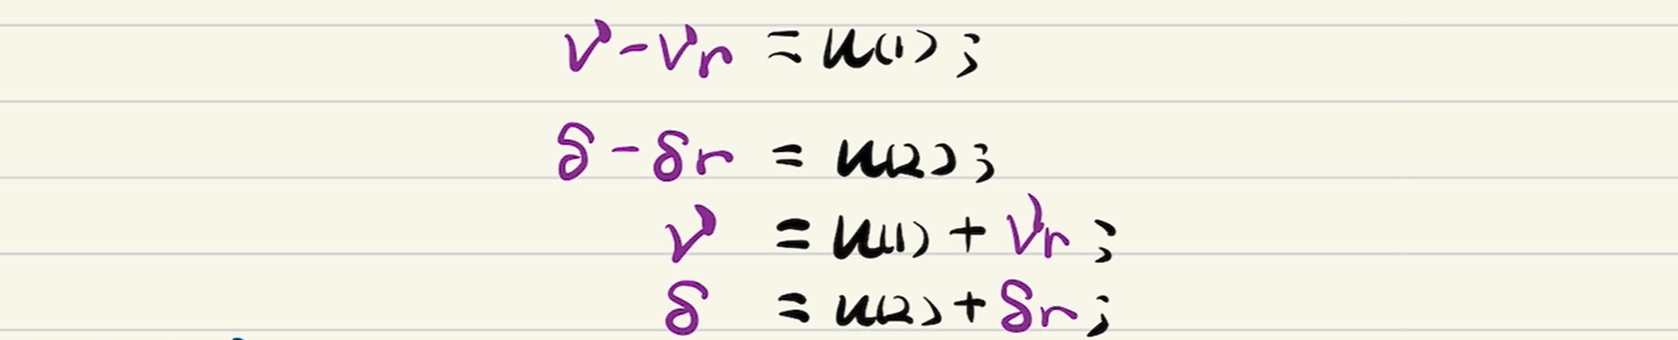 v-vr = u(1);
δ-δr = u(2);
v = u(1) + vr;
δ = u(2) + δr;